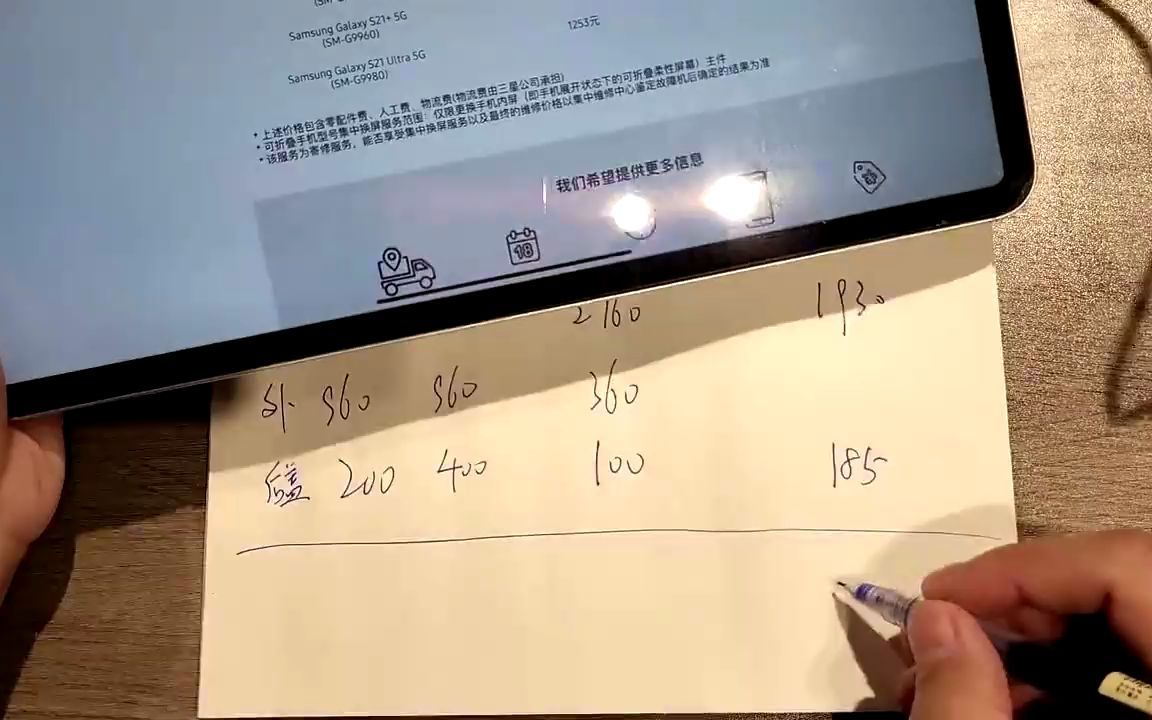 Samsung Galaxy S21+ 5G
(SM-G9960)
1253元
Samsung Galaxy S21 Ultra 5G
(SM-G9980)
• 上述价格包含零配件费、人工费、物流费(物流费由三星公司承担)
• 可折叠手机型号集中换屏服务范围：仅限更换手机内屏（即手机展开状态下的可折叠柔性屏幕）主件
• 该服务为寄修服务，能否享受集中换屏服务以及最终的维修价格以集中维修中心鉴定故障机后确定的结果为准
我们希望提供更多信息
18
2160 1930
外 960 560 360
后盖 200 400 100 185